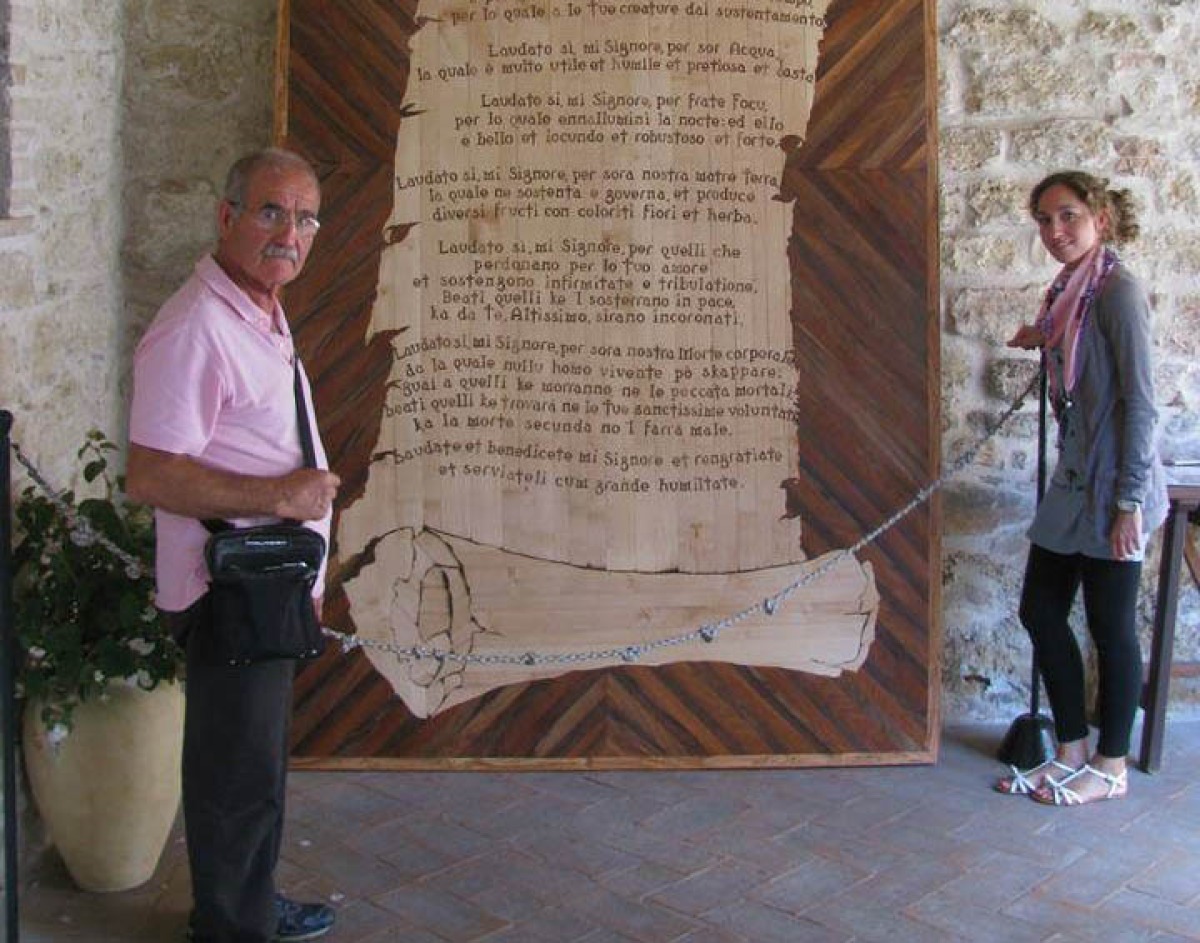 per lo quale a le tue creature dai sustentamento
Laudato si, mi Signore, per sor Acqua,
la quale è multo utile et humile et pretiosa et casta
Laudato si, mi Signore, per frate Focu,
per lo quale ennallumini la nocte: ed ello
è bello et iocundo et robustoso et forte.
Laudato si, mi Signore, per sora nostra matre Terra,
la quale ne sostenta e governa, et produce
diversi fructi con coloriti fiori et herba.
Laudato si, mi Signore, per quelli che
perdonano per lo tuo amore
et sostengono infirmitate e tribulatione.
Beati quelli ke 'l sosterrano in pace,
ka da Te, Altissimo, sirano incoronati.
Laudato si, mi Signore, per sora nostra Morte corporale
da la quale nullu homo vivente pò skappare:
guai a quelli ke morranno ne le peccata mortali
beati quelli ke trovarà ne le tue sanctissime voluntati
ka la morte secunda no 'l farrà male.
Laudate et benedicete mi Signore et rengratiate
et serviateli cum grande humiltate.